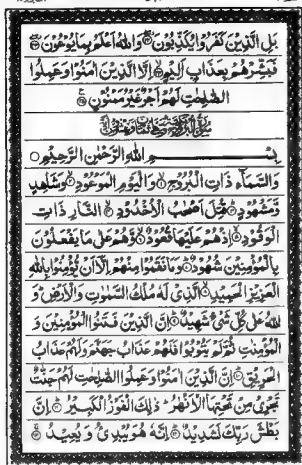 بَلِ الَّذِيْنَ كَفَرُوْا يُكَذِّبُوْنَ ۝ وَاللّٰهُ اَعْلَمُ بِمَا يُوْعُوْنَ ۝
فَبَشِّرْهُمْ بِعَذَابٍ اَلِيْمٍ ۝ اِلَّا الَّذِيْنَ اٰمَنُوْا وَعَمِلُوا
الصّٰلِحٰتِ لَهُمْ اَجْرٌ غَيْرُ مَمْنُوْنٍ ۝
بِسْمِ اللّٰهِ الرَّحْمٰنِ الرَّحِيْمِ ۝
وَالسَّمَآءِ ذَاتِ الْبُرُوْجِ ۝ وَالْيَوْمِ الْمَوْعُوْدِ ۝ وَشَاهِدٍ
وَّمَشْهُوْدٍ ۝ قُتِلَ اَصْحٰبُ الْاُخْدُوْدِ ۝ النَّارِ ذَاتِ
الْوَقُوْدِ ۝ اِذْ هُمْ عَلَيْهَا قُعُوْدٌ ۝ وَّهُمْ عَلٰى مَا يَفْعَلُوْنَ
بِالْمُؤْمِنِيْنَ شُهُوْدٌ ۝ وَمَا نَقَمُوْا مِنْهُمْ اِلَّا اَنْ يُّؤْمِنُوْا بِاللّٰهِ
الْعَزِيْزِ الْحَمِيْدِ ۝ الَّذِيْ لَهٗ مُلْكُ السَّمٰوٰتِ وَالْاَرْضِ ؕ وَ
اللّٰهُ عَلٰى كُلِّ شَيْءٍ شَهِيْدٌ ۝ اِنَّ الَّذِيْنَ فَتَنُوا الْمُؤْمِنِيْنَ وَ
الْمُؤْمِنٰتِ ثُمَّ لَمْ يَتُوْبُوْا فَلَهُمْ عَذَابُ جَهَنَّمَ وَلَهُمْ عَذَابُ
الْحَرِيْقِ ۝ اِنَّ الَّذِيْنَ اٰمَنُوْا وَعَمِلُوا الصّٰلِحٰتِ لَهُمْ جَنّٰتٌ
تَجْرِيْ مِنْ تَحْتِهَا الْاَنْهٰرُ ؕ ذٰلِكَ الْفَوْزُ الْكَبِيْرُ ۝ اِنَّ
بَطْشَ رَبِّكَ لَشَدِيْدٌ ۝ اِنَّهٗ هُوَ يُبْدِئُ وَيُعِيْدُ ۝